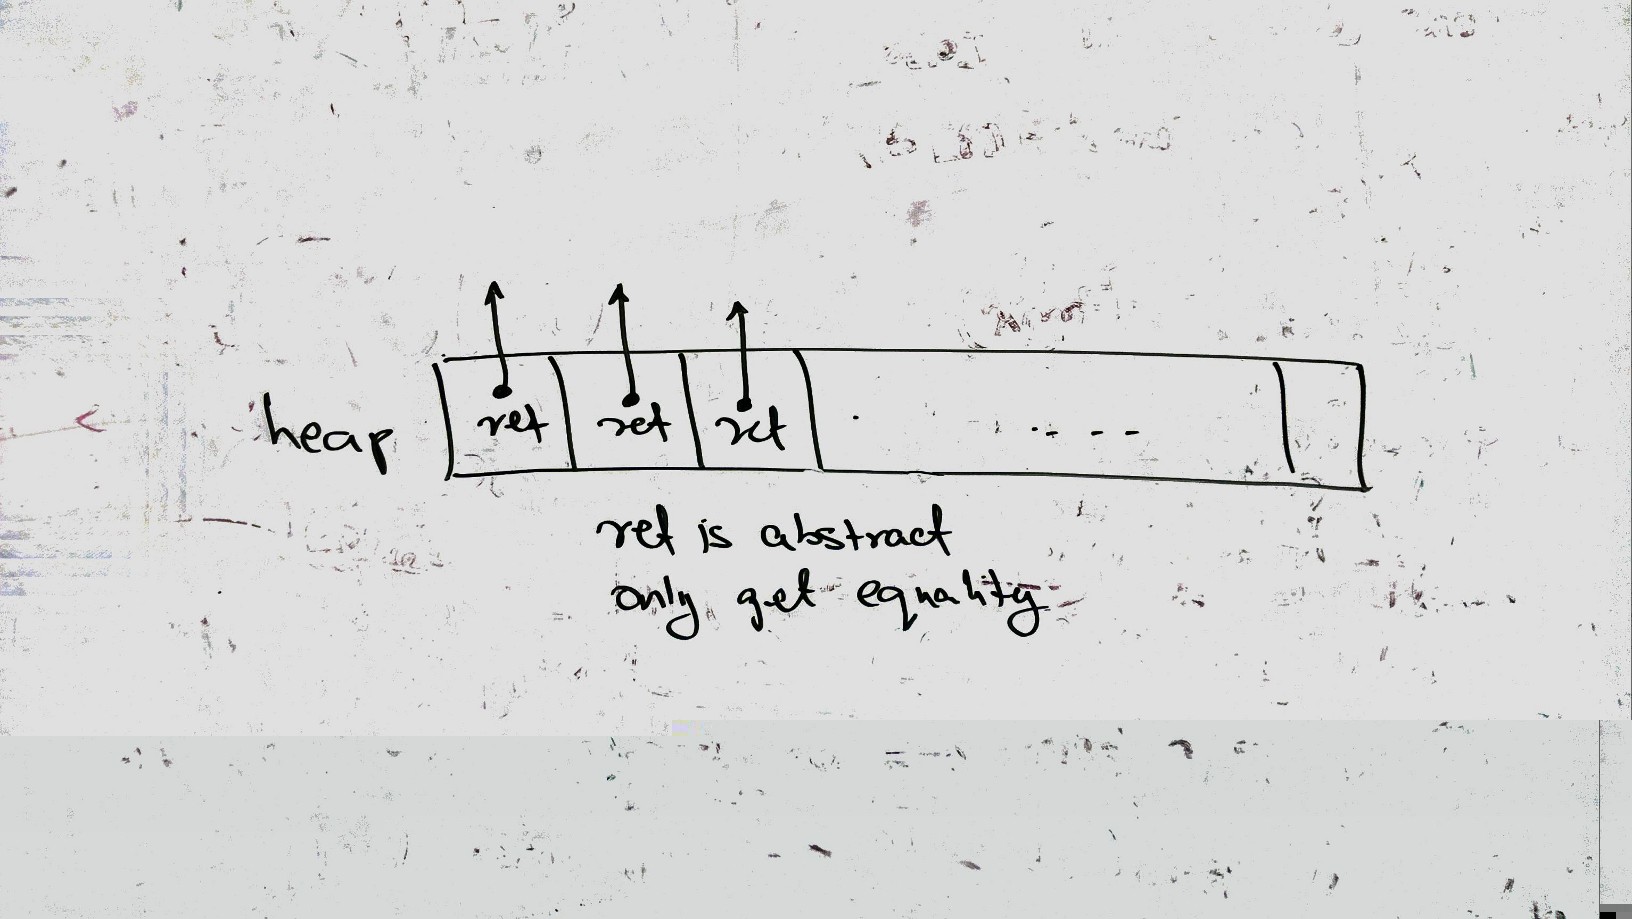 heap
ret ret ret
ret is abstract
only get equality